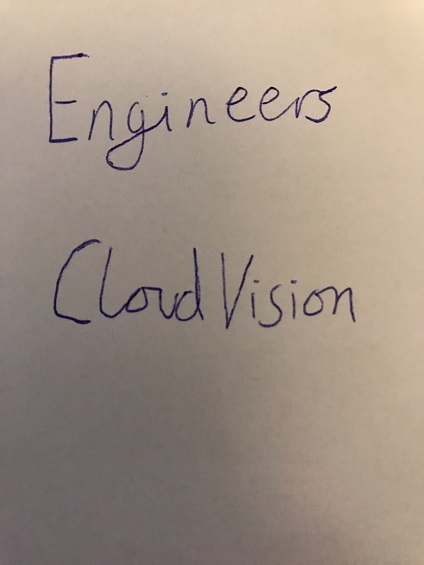 Engineers
Cloud Vision